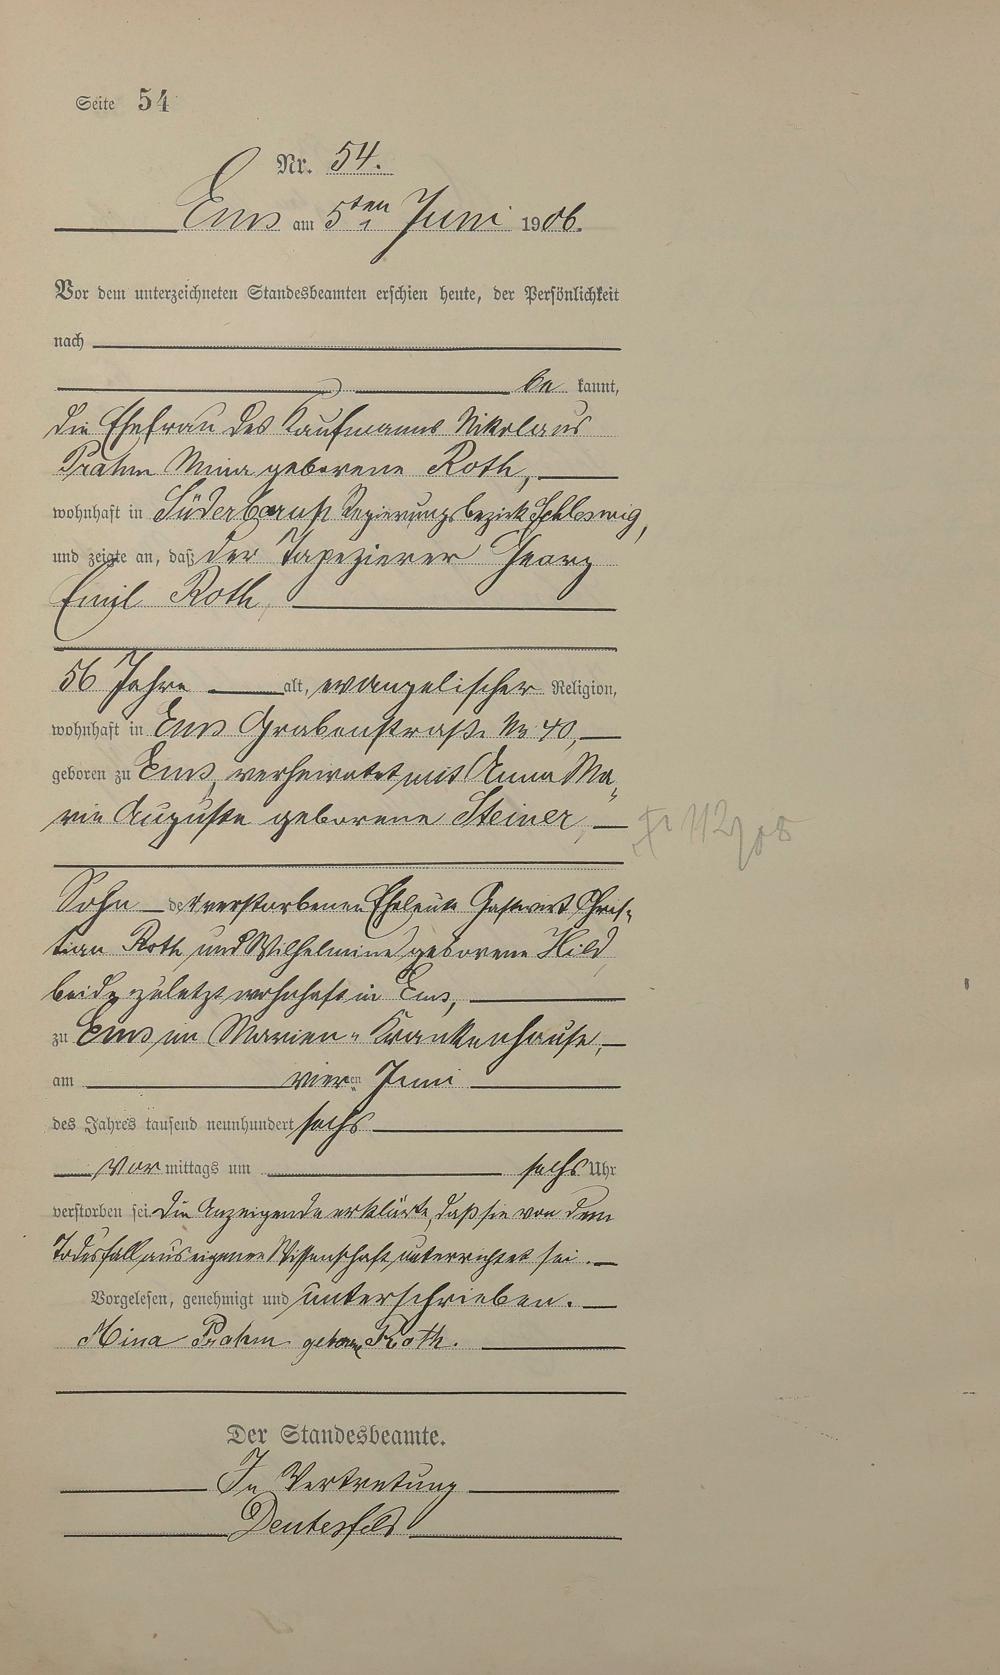 Seite 54
Nr. 54.
Ems am 5ten Juni 1906.
Vor dem unterzeichneten Standesbeamten erschien heute, der Persönlichkeit
nach
be kannt,
die Ehefrau des Kaufmanns Nikolaus
Prahm Mina geborene Roth,
wohnhaft in Süderbrarup Regierungsbezirk Schleswig,
und zeigte an, daß der Tapezierer Georg
Emil Roth,
56 Jahre alt, evangelischer Religion,
wohnhaft in Ems Grabenstraße No 40,
geboren zu Ems, verheiratet mit Anna Ma-
rie Auguste geborene Steiner,
112/08
Sohn der verstorbenen Eheleute Gastwirt Chris-
tian Roth und Wilhelmine geborene Hild,
beide zuletzt wohnhaft in Ems,
zu Ems im Marien-Krankenhause,
am vierten Juni
des Jahres tausend neunhundert sechs
Vor mittags um sechs Uhr
verstorben sei. Die Anzeigende erklärte, daß sie von dem
Todesfall aus eigener Wissenschaft unterrichtet sei.
Vorgelesen, genehmigt und unterschrieben.
Mina Prahm geborne Roth.
Der Standesbeamte.
In Vertretung